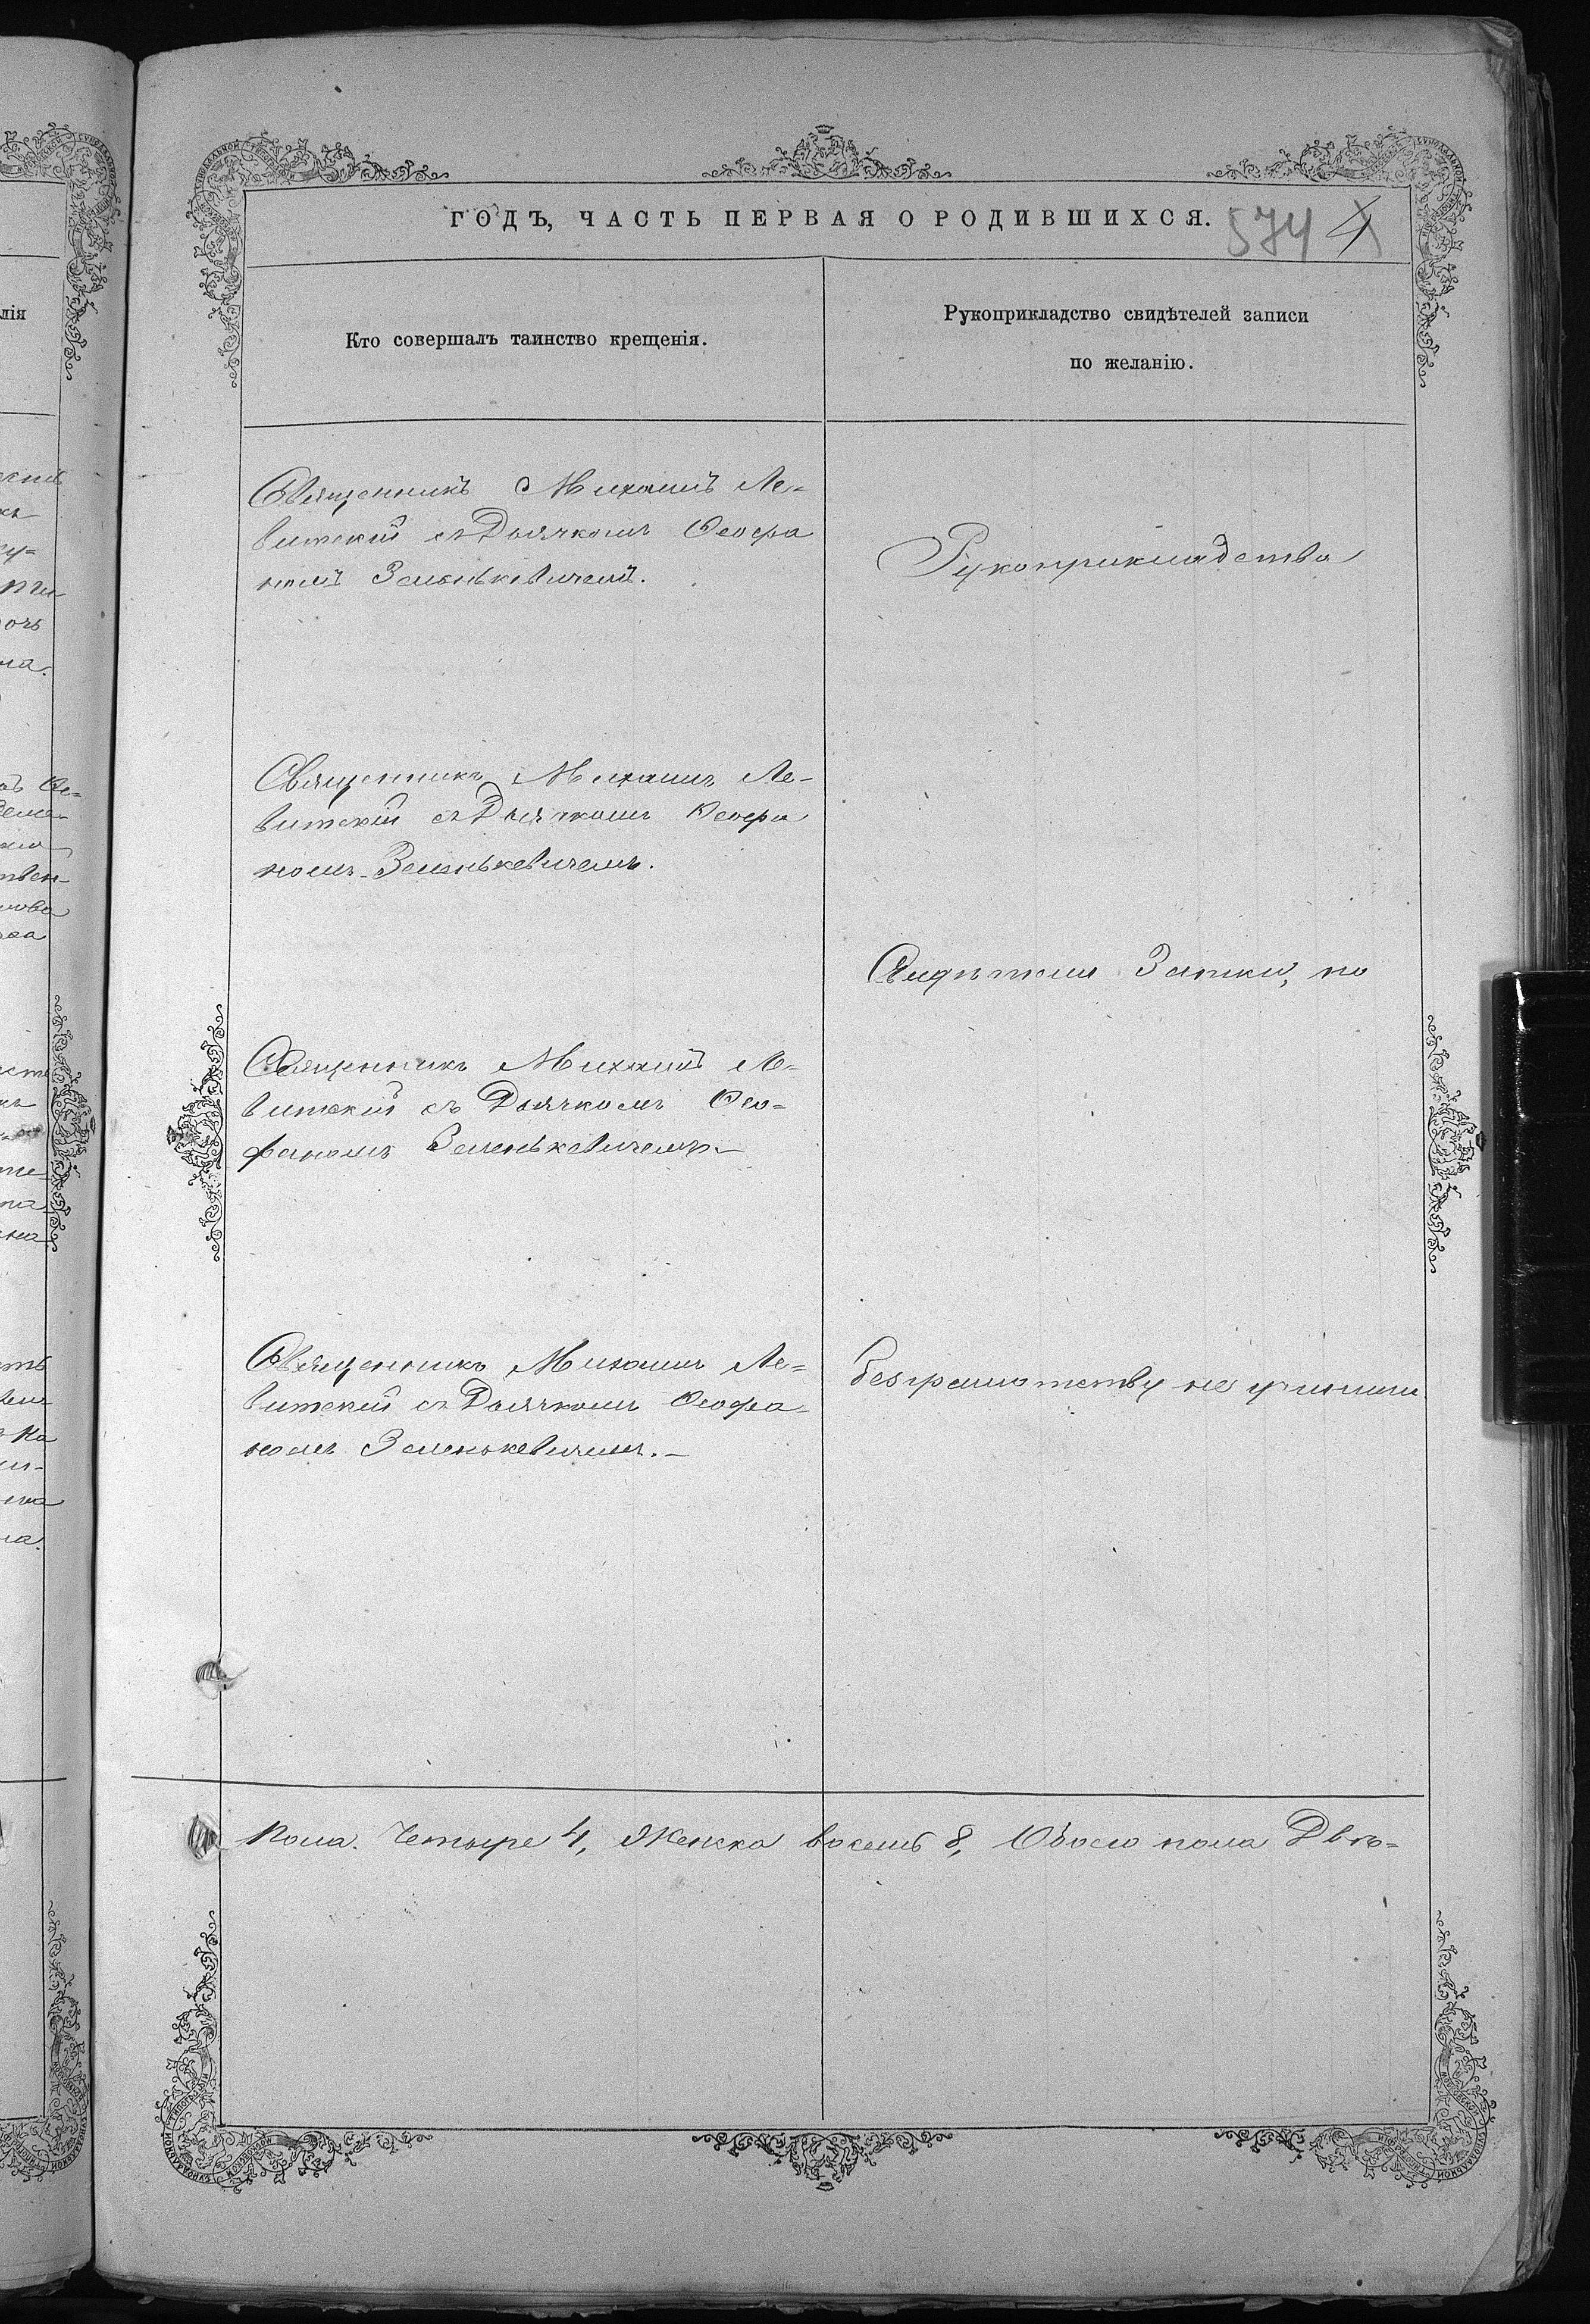 ГОДЪ, ЧАСТЬ ПЕРВАЯ О РОДИВШИХСЯ.
574 4
Кто совершалъ таинство крещенія.
Рукоприкладство свидѣтелей записи
по желанію.
Священникъ Михаилъ Ле-
витскій съ Дьячкомъ Ѳеофа
номъ Зеленькевичемъ.
Рукоприкладства
Священникъ Михаилъ Ле-
витскій съ Дьячкомъ Ѳеофа
номъ Зеленькевичемъ.
Свидѣтели Записи, по
Священникъ Михаилъ Ле-
витскій съ Дьячкомъ Ѳео=
фаномъ Зеленькевичемъ.
Священникъ Михаилъ Ле=
витскій съ Дьячкомъ Ѳеофа-
номъ Зеленькевичемъ.
безграмотству не учинили
пола. Четыре 4, Женска восемь 8, Обоего пола Двѣ=
лія